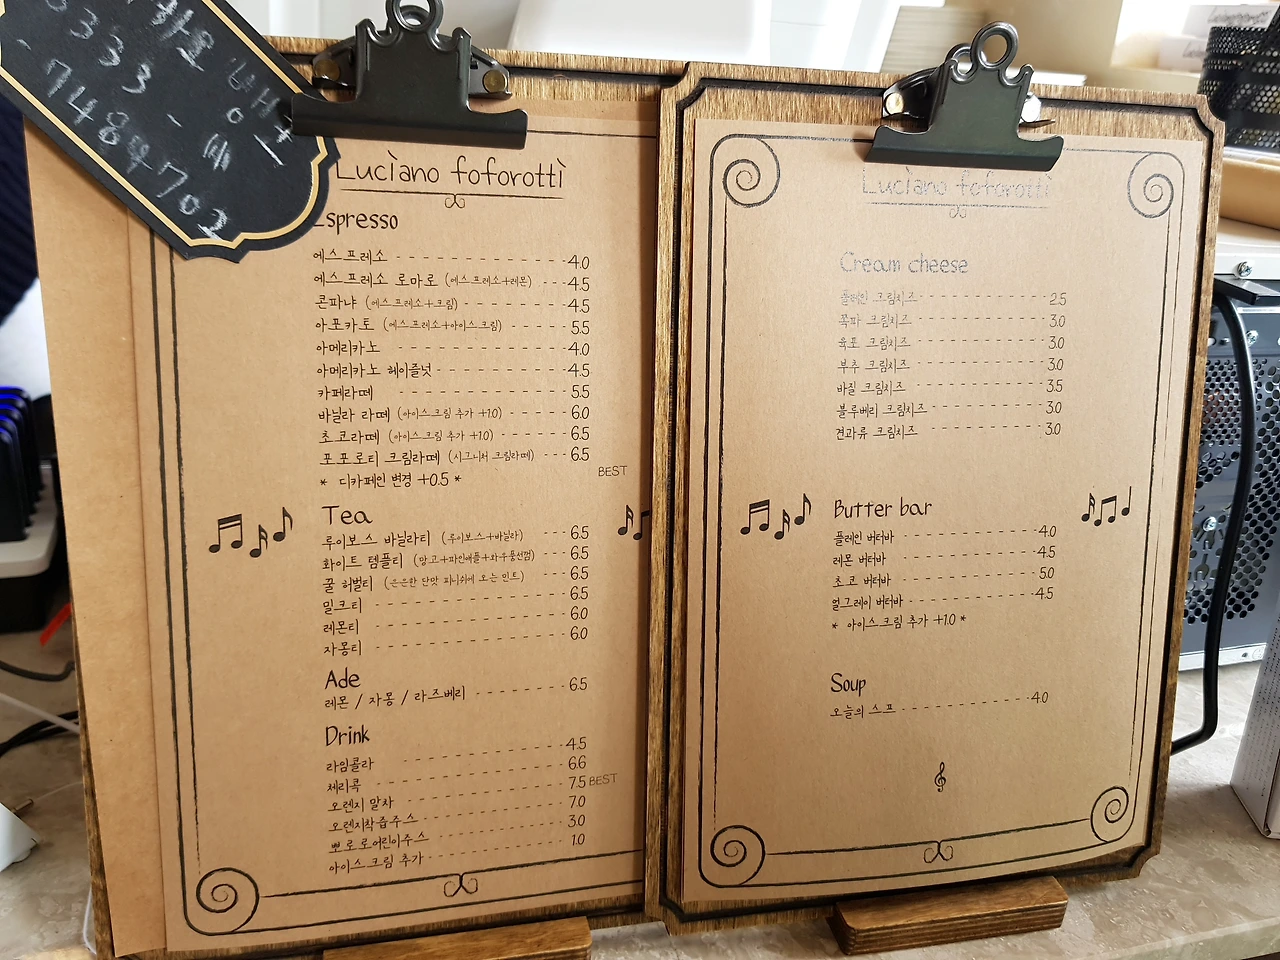 333
7489702
Lucìano foforottì
Espresso
에스프레소 4.0
에스프레소 로마로 (에스프레소+레몬) 4.5
콘파냐 (에스프레소+크림) 4.5
아포카토 (에스프레소+아이스크림) 5.5
아메리카노 4.0
아메리카노 헤이즐넛 4.5
카페라떼 5.5
바닐라 라떼 (아이스크림 추가 +1.0) 6.0
초코라떼 (아이스크림 추가 +1.0) 6.5
포포로티 크림라떼 (시그니처 크림라떼) 6.5
BEST
* 디카페인 변경 +0.5 *
Tea
루이보스 바닐라티 (루이보스+바닐라) 6.5
화이트 템플티 (망고+파인애플+화우풍선껌) 6.5
꿀 허벌티 (은은한 단맛 피니쉬에 오는 민트) 6.5
밀크티 6.5
레몬티 6.0
자몽티 6.0
Ade
레몬 / 자몽 / 라즈베리 6.5
Drink
라임콜라 4.5
체리콕 6.6
오렌지 말차 7.5 BEST
오렌지착즙주스 7.0
뽀로로어린이주스 3.0
아이스크림 추가 1.0
Lucìano foforottì
Cream cheese
플레인 크림치즈 2.5
쪽파 크림치즈 3.0
육포 크림치즈 3.0
부추 크림치즈 3.0
바질 크림치즈 3.5
블루베리 크림치즈 3.0
견과류 크림치즈 3.0
Butter bar
플레인 버터바 4.0
레몬 버터바 4.5
초코 버터바 5.0
얼그레이 버터바 4.5
* 아이스크림 추가 +1.0 *
Soup
오늘의 스프 4.0